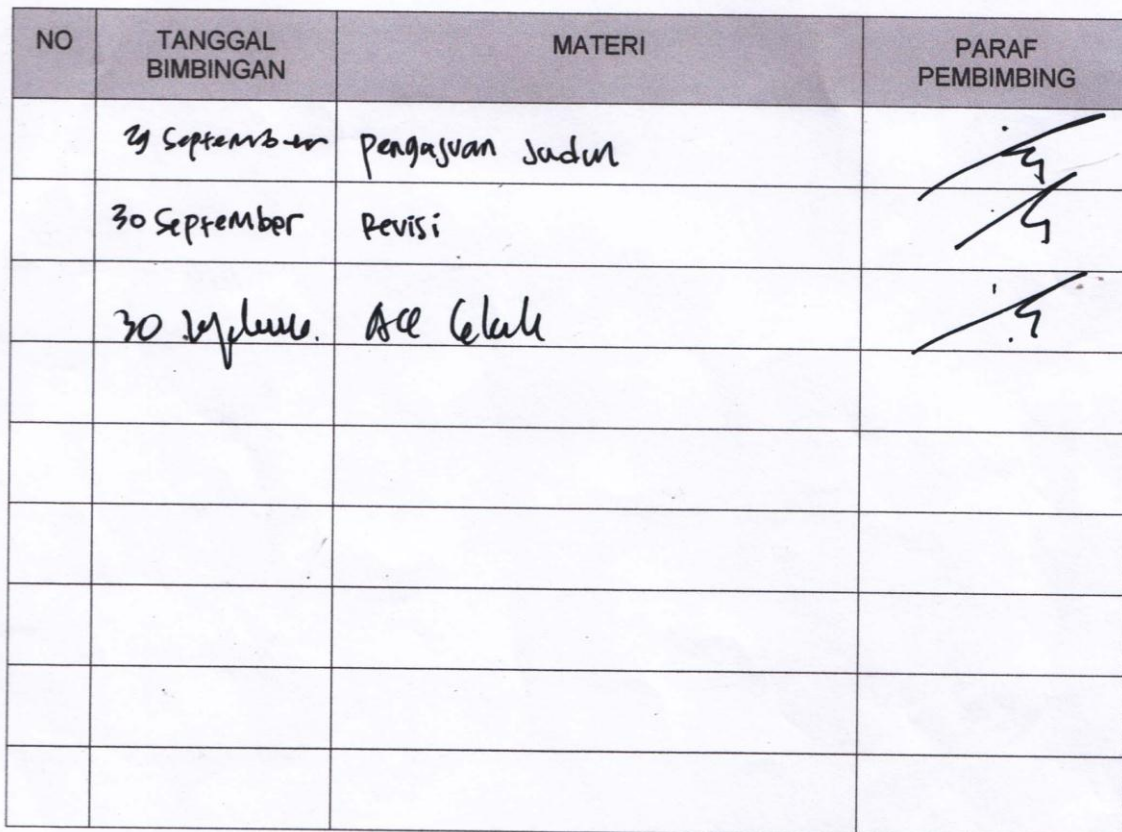 NO
TANGGAL
BIMBINGAN
MATERI
PARAF
PEMBIMBING
29 September
Pengajuan Judul
30 September
Revisi
30 September.
Acc Cetak